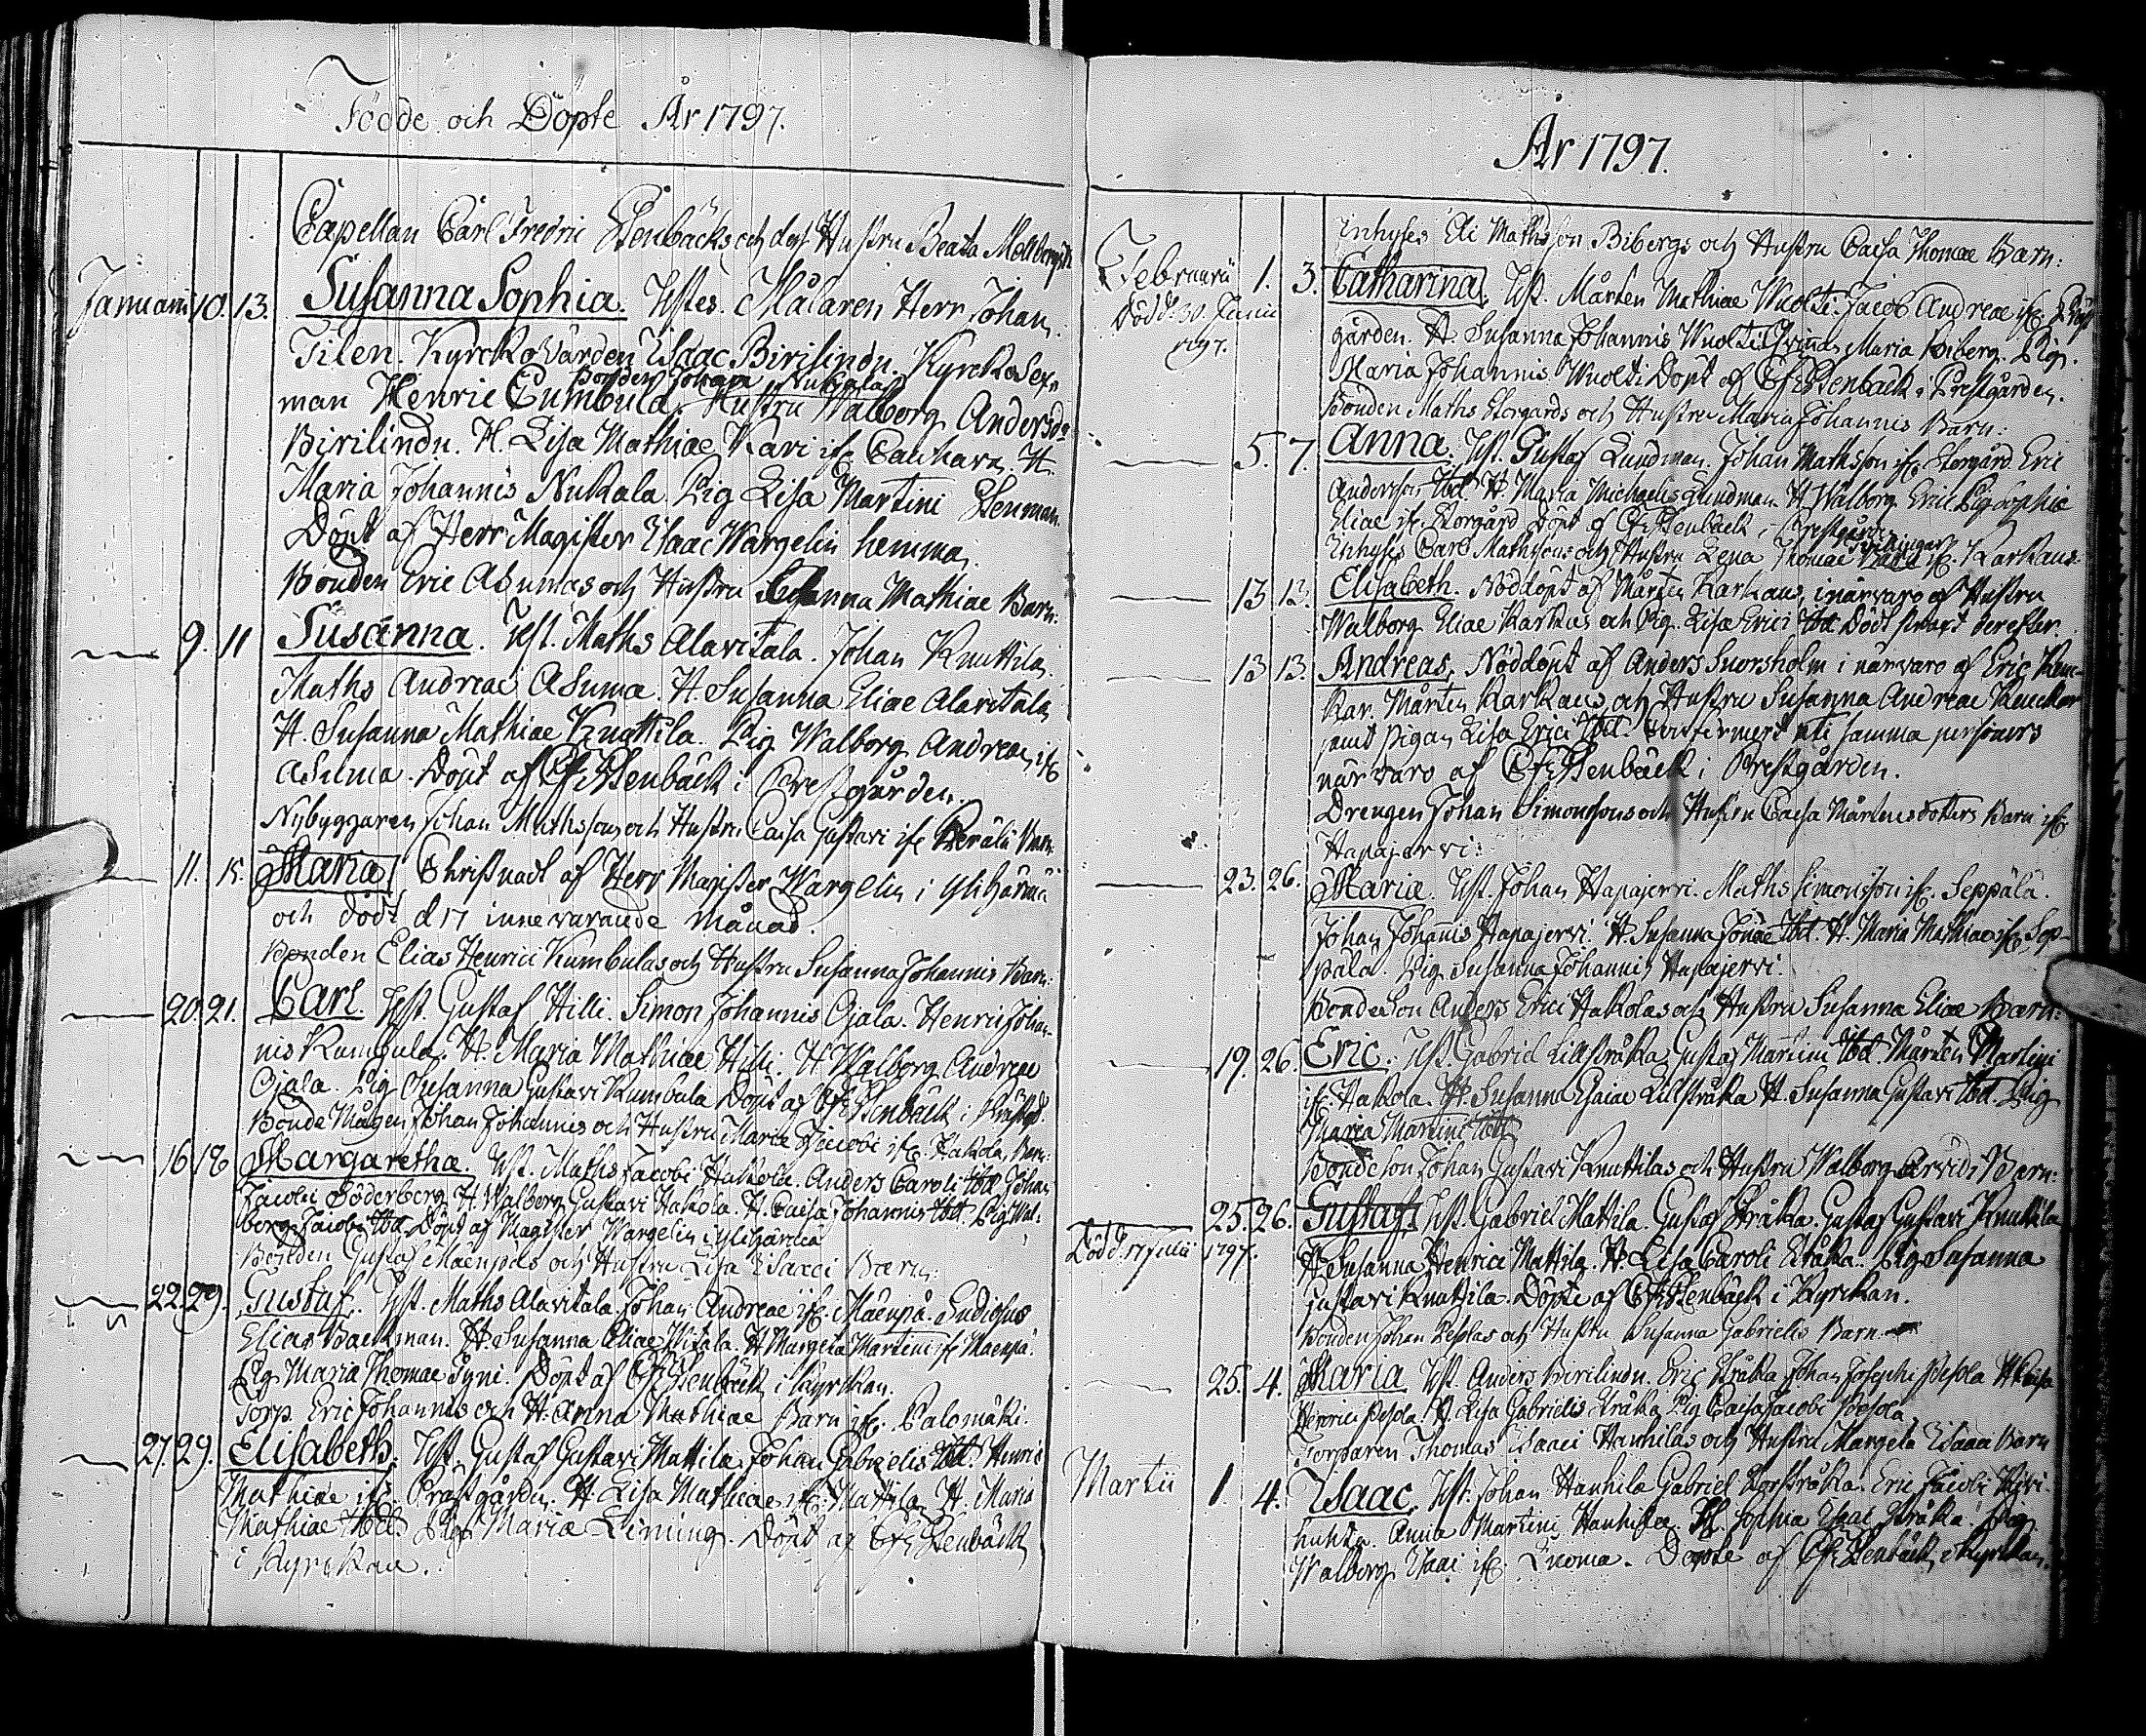 Födde och Döpte År 1797.
Capellan Carl Fredric Stenbäcks och dess Hustru Beata
Januarii 10. 13. Susanna Sophia. Test. Målaren Herr Johan
Tilen. Kyrckovärden Isaac Birilindn. Kyrcko Sex
Bonden Johan Nukala
man Henric Cumbula. Hustru Walborg Andersdr
Birilindn. H. Lisa Mathiae Kari ifr. Cauhava. H.
Maria Johannis Nukala. Pig Lisa Martini Stenman
Döpt af Herr Magister Isaac Wargelin hemma.
Bonden Eric Asumas och Hustru Mathiae Barn:
9. 11 Susanna. Test. Maths Alavitala. Johan Knuttila
Maths Andreae Asuma. H. Susanna Eliae Alavitala
H. Susanna Mathiae Knuttila. Pig Walborg Andreae ifr
Asuma. Döpt af CF Stenbäck i Prestgården.
Nybyggaren Johan Mathsson och Hustru Caisa Gustavi ifr Barn
11. 15. Maria Christnadt af Herr Magister Wargelin i Ylihärmä
och död d 17 innevarande Månad.
Bonden Elias Henrici Kumbulas och Hustru Susanna Johannis Barn:
20. 21. Carl. Test. Gustaf Hilli. Simon Johannis Ojala. Henric Johan
nis Kumbula. H. Maria Mathiae Hilli. H Walborg Andreae
Ojala. Pig Susanna Gustavi Kumbula Döpt af CF Stenbäck i Prästgd.
Bonde Mågen Johan Johannis och Hustru Maria Jacobi ifr. Hakola, Barn:
16 18 Margaretha. Test. Maths Jacobi Hakola. Anders Caroli Ibd Johan
Jacobi Söderberg H. Walborg Gustavi Hakola. H. Caisa Johannis Ibd. Pig Wal-
borg Jacobi Ibd. Döpt af Magister Wargelin i Ylihärmä
Bonden Gustaf Mäenpäs och Hustru Lisa Isaaci Barn:
22. 29. Gustaf. Test. Maths Alavitala Johan Andreae ifr. Mäenpä.
Elias Backman. H. Susanna Eliae Witala. H Margeta Martini ifr Mäenpä.
Pig Maria Thomae Syni. Döpt af CF Stenbäck i Kyrckan.
Torp. Eric Johannis och H. Anna Mathiae Barn ifr. Palomäki.
27. 29. Elisabeth. Test. Gustaf Gustavi Mattila Johan Gabrielis Ibd. Henric
Mathiae ifr. Prästgården. H. Lisa Mathiae ifr. Mattila H. Maria
Mathiae Ibd. Pig Maria Liming. Döpt af CF Stenbäck
i Kyrckan.
År 1797.
Inhyses Eli Mathsson Bibergs och Hustru Caisa Thomae Barn:
Februarii 1. 3. Catharina. Test. Mårten Mathiae Wuolti. Jacob Andreae ifr Prest
Död d. 30 Junii
1797.
gården. H. Susanna Johannis Wuolti Maria Biberg. Pig.
Maria Johannis Wuolti Döpt af CF Stenbäck i Prestgården.
Bonden Maths Storgårds och Hustru Maria Johannis Barn:
5. 7. Anna. Test. Gustaf Lundman. Johan Mathsson ifr Storgård. Eric
Andersson Ibd. H. Maria Michaelis Lundman H Walborg Erici Pig Sophie
Eliae ifr Storgård Döpt af CF Stenbäck i Prestgården
Inhyses Carl Mathssons och Hustru Lena Thomae Tvillingar ifr. Karkaus
13 13. Elisabeth. Nöddöpt af Mårten Karkaus, i närvaro af Hustru
Walborg Eliae Karkaus och Pig. Lisa Erici Ibd. Död strart derefter.
13 13. Andreas. Nöddöpt af Anders Snorsholm i närvaro af Eric
kar. Mårten Karkaus och Hustru Susanna Andreae
samt pigan Lisa Erici Ibd. uti samma persiners
närvaro af CF Stenbäck i Prestgården.
Drengen Johan Simonssons och Hustru Caisa Mårtensdotters Barn ifr
Hapajervi:
23. 26. Maria. Test. Johan Hapajervi. Maths Simonsson ifr. Seppälä.
Johan Johanis Hapajervi. H. Susanna Jonae Ibd. H. Maria Mathiae ifr Sep-
pälä. Pig Susanna Johannis Hapajervi.
Bondeson Anders Erici Hakolas och Hustru Susanna Eliae Barn:
19. 26. Eric. Test. Gabriel Lillstråka Gustaf Martini Ibd. Mårten Martini
ifr. Hakola. H. Susanna Esaiae Lillstråka H. Susanna Gustavi Ibd. Pig
Maria Martini Ibd
Bondeson Johan Gustavi Knuttilas och Hustru Walborg Arvids Barn:
25. 26. Gustaf. Test. Gabriel Mattila. Gustaf Stråka. Gustaf Gustavi Knuttila
Död d. 17 Julii 1797. H Susanna Henrici Mattila. H. Lisa Caroli Stråka. Pig Susanna
Gustavi Knuttila. Döpte af CF Stenbäck i Kyrckan.
Bonden Johan Pesolas och Hustru Susanna Gabrielis Barn.
25. 4. Maria Test. Anders Birilindn. Eric Stråka Johan Josephi Pesola H
Henrici Pesola. H. Lisa Gabrielis Stråka Pig Caisa Jacobi Pesola
Torparen Thomas Isaaci Hanhilas och Hustru Margeta Isaaci Barn
Martii 1. 4. Isaac. Test. Johan Hanhila Gabriel Storstråka. Eric Jacobi
huhta. Anna Martini Hanhila H Sophia Isaci Stråka. Pig
Walborg Isaci ifr. Luoma. Döpte af CF Stenbäck i Kyrckan.